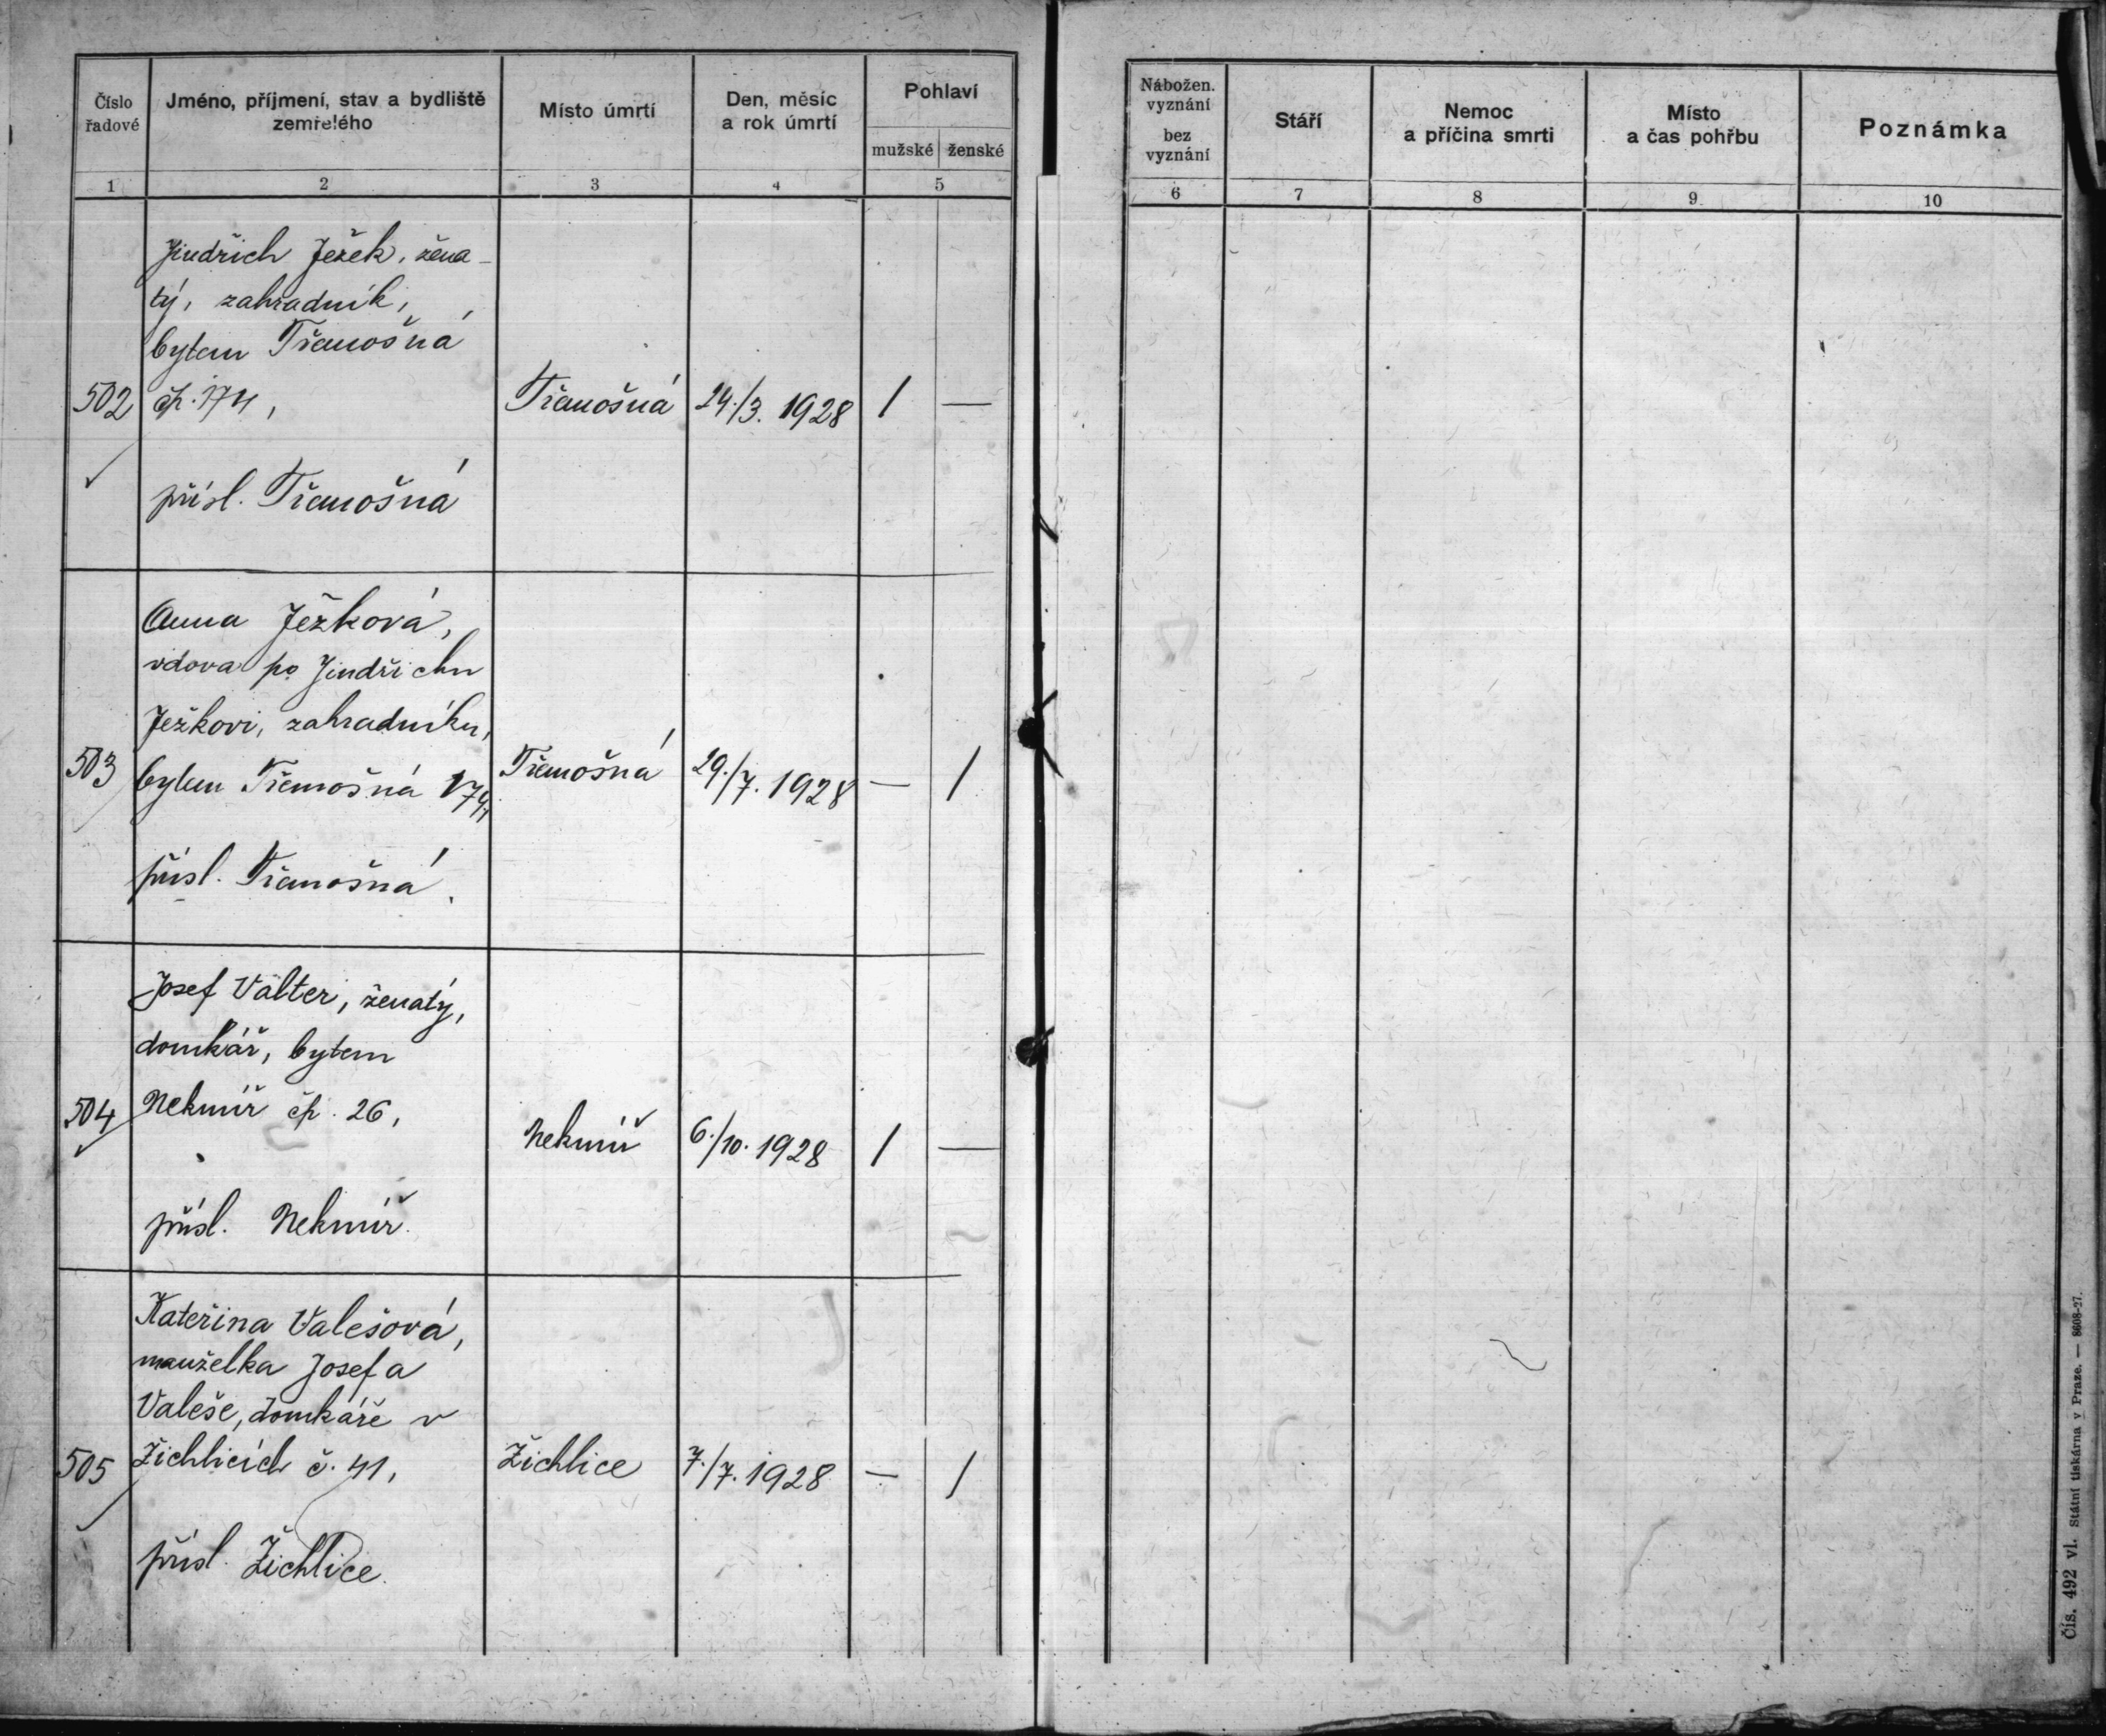 Číslo řadové
Jméno, příjmení, stav a bydliště zemřelého
Místo úmrtí
Den, měsíc a rok úmrtí
Pohlaví
mužské ženské
1 2 3 4 5
Nábožen. vyznání
bez vyznání
Stáří
Nemoc a příčina smrti
Místo a čas pohřbu
Poznámka
6 7 8 9 10
Jindřich Ježek, žena-
tý, zahradník,
bytem Třemošná
502 čp. 174, Třemošná 24./3. 1928 / —
přísl. Třemošná
Anna Ježková,
vdova po Jindřichu
Ježkovi, zahradníku,
503 bytem Třemošná 174, Třemošná 29./7. 1928 — /
přísl. Třemošná.
Josef Valter, ženatý,
domkář, bytem
504 Nekmíř čp. 26, Nekmíř 6./10. 1928 / —
přísl. Nekmíř.
Kateřina Valešová,
manželka Josefa
Valeše, domkáře v
505 Žichlicích č. 41, Žichlice 7./7. 1928 — /
přísl. Žichlice.
Čís. 492 vl. Státní tiskárna v Praze. — 8608-27.